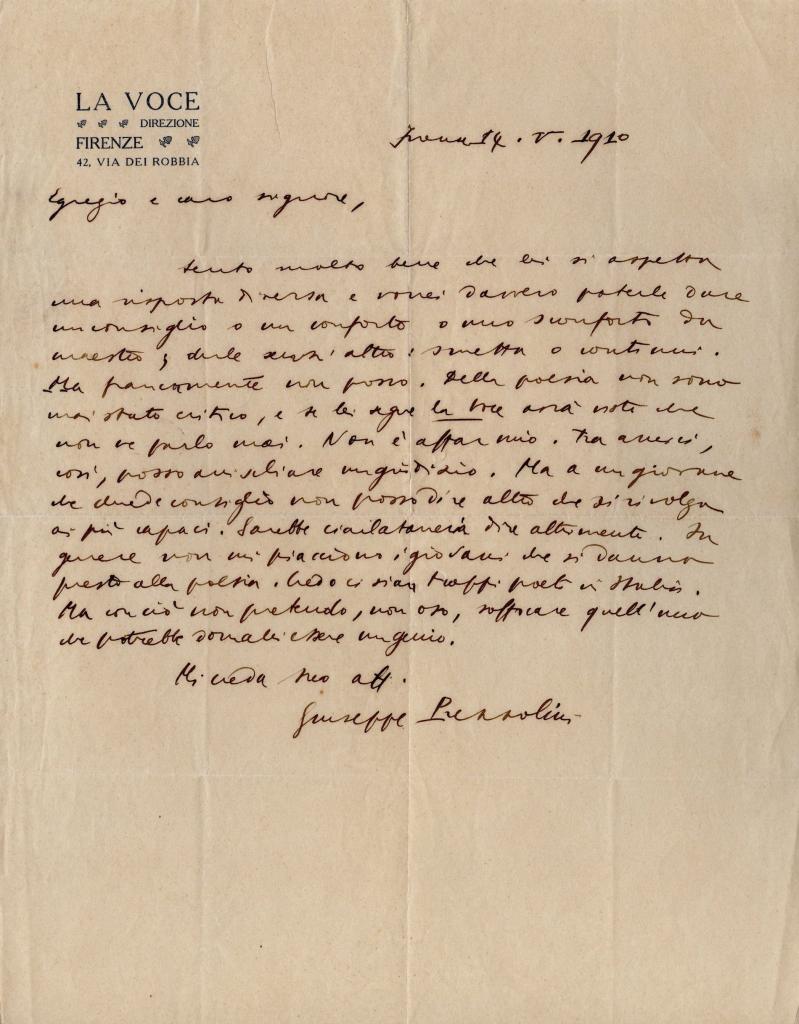 LA VOCE
DIREZIONE
FIRENZE
42, VIA DEI ROBBIA
14. V. 1910
Egregio e caro signore,
sento molto bene che lei si aspetta
una risposta diversa e vorrei davvero poterle dare
un consiglio o un conforto o uno sconforto da
maestro; dirle senz'altro: smetta o continui.
Ma francamente non posso. Della poesia non sono
mai stato critico, e se lei segue la Voce avrà visto che
non ne parlo mai. Non è affar mio. Tra amici,
così, posso arrischiare un giudizio. Ma a un giovane
che chiede consiglio non posso dire altro che si rivolga
ai più capaci. Sarebbe ciarlataneria dire altrimenti. In
genere non mi piacciono i giovani che si danno
presto alla poesia. Credo ci sian troppi poeti in Italia.
Ma con ciò non pretendo, non oso, soffocare quell'uno
che potrebbe domani essere un genio.
Mi creda suo aff.
Giuseppe Prezzolini